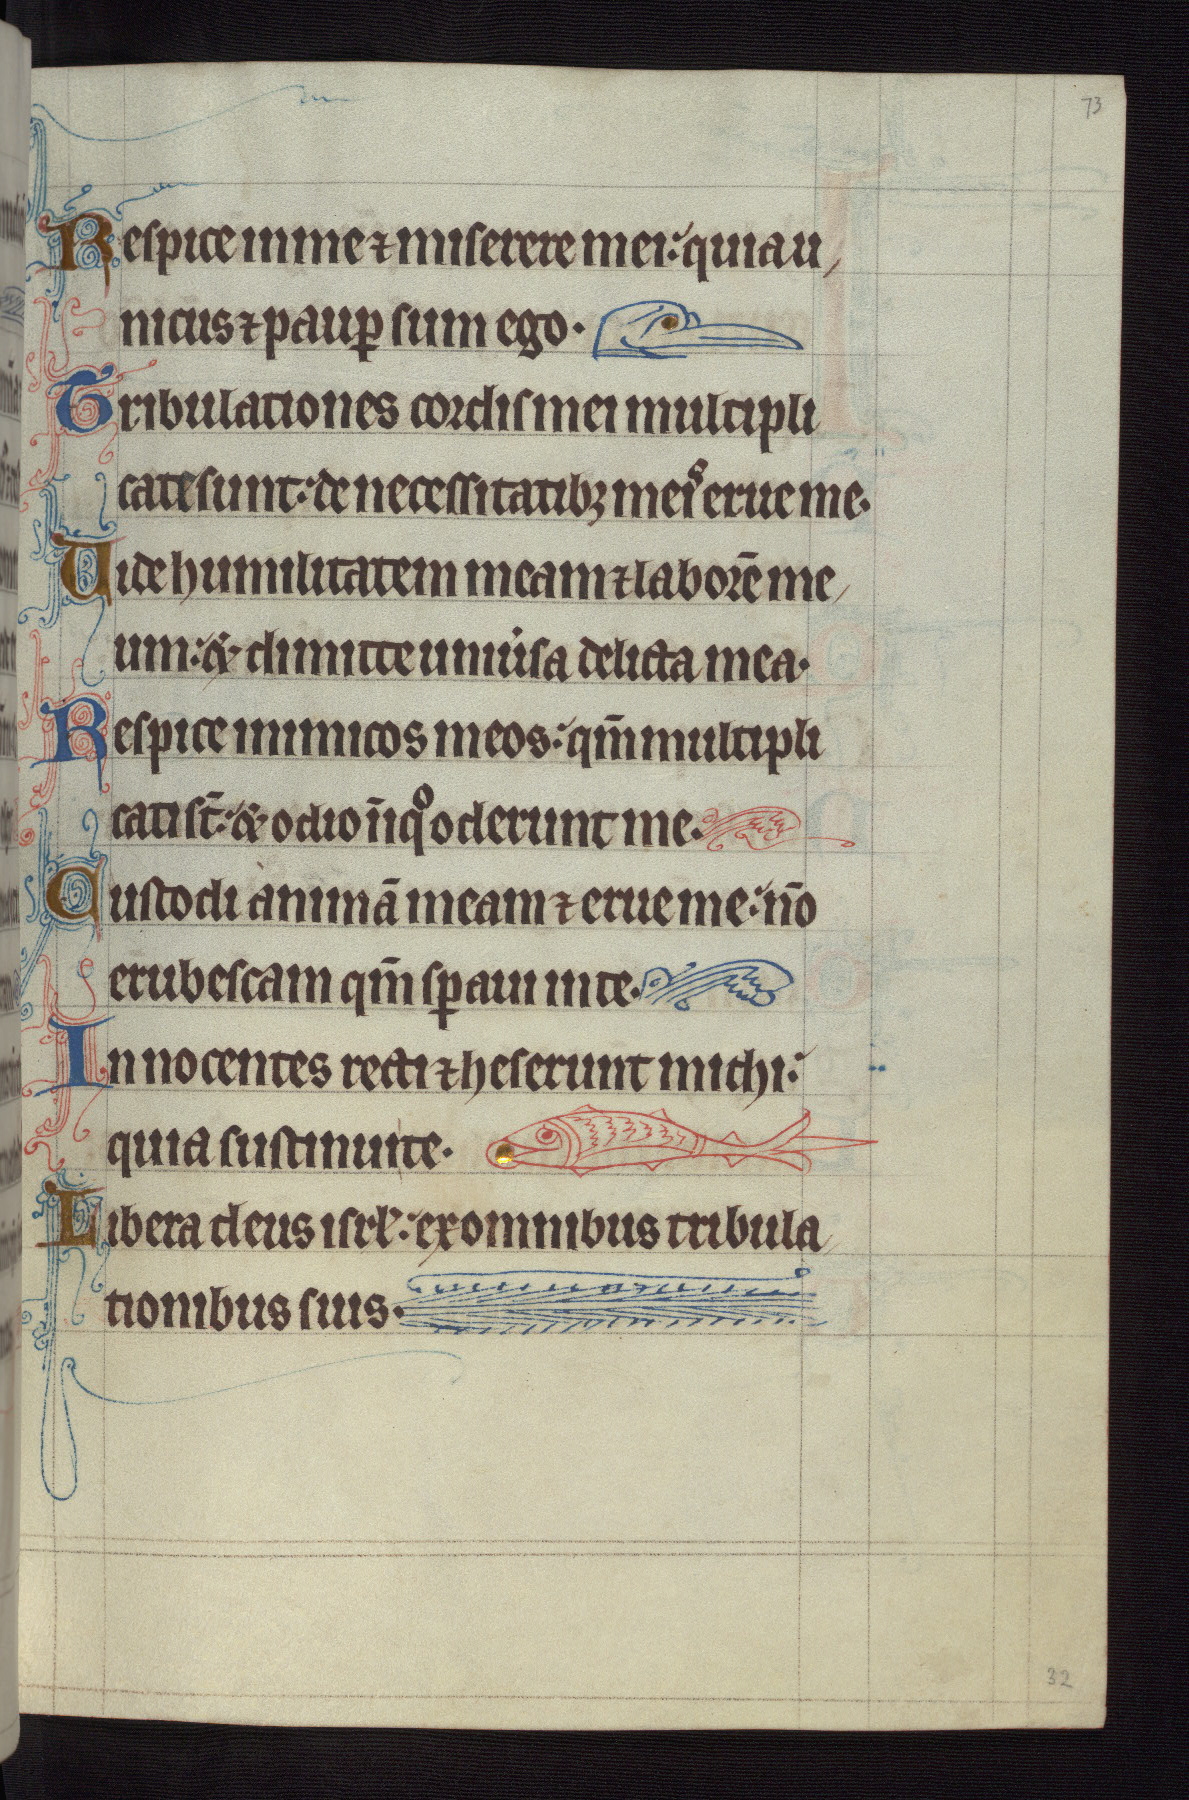 73
Respice in me ⁊ miserere mei: quia u
nicus ⁊ paup̱ sum ego.
Tribulationes cordis mei multipli
cate sunt: de necessitatibꝫ meis erue me.
Uide humilitatem meam ⁊ laborē me
um: & dimitte uniu̾sa delicta mea.
Respice inimicos meos: qm̄ multipli
cati st̄: & odio iniqͦ oderunt me.
Custodi animā meam ⁊ erue me: nō
erubescam qm̄ sꝑaui in te.
Innocentes recti ⁊ heserunt michi:
quia sustinui te.
Libera deus isrł: ex omnibus tribula
tionibus suis.
32